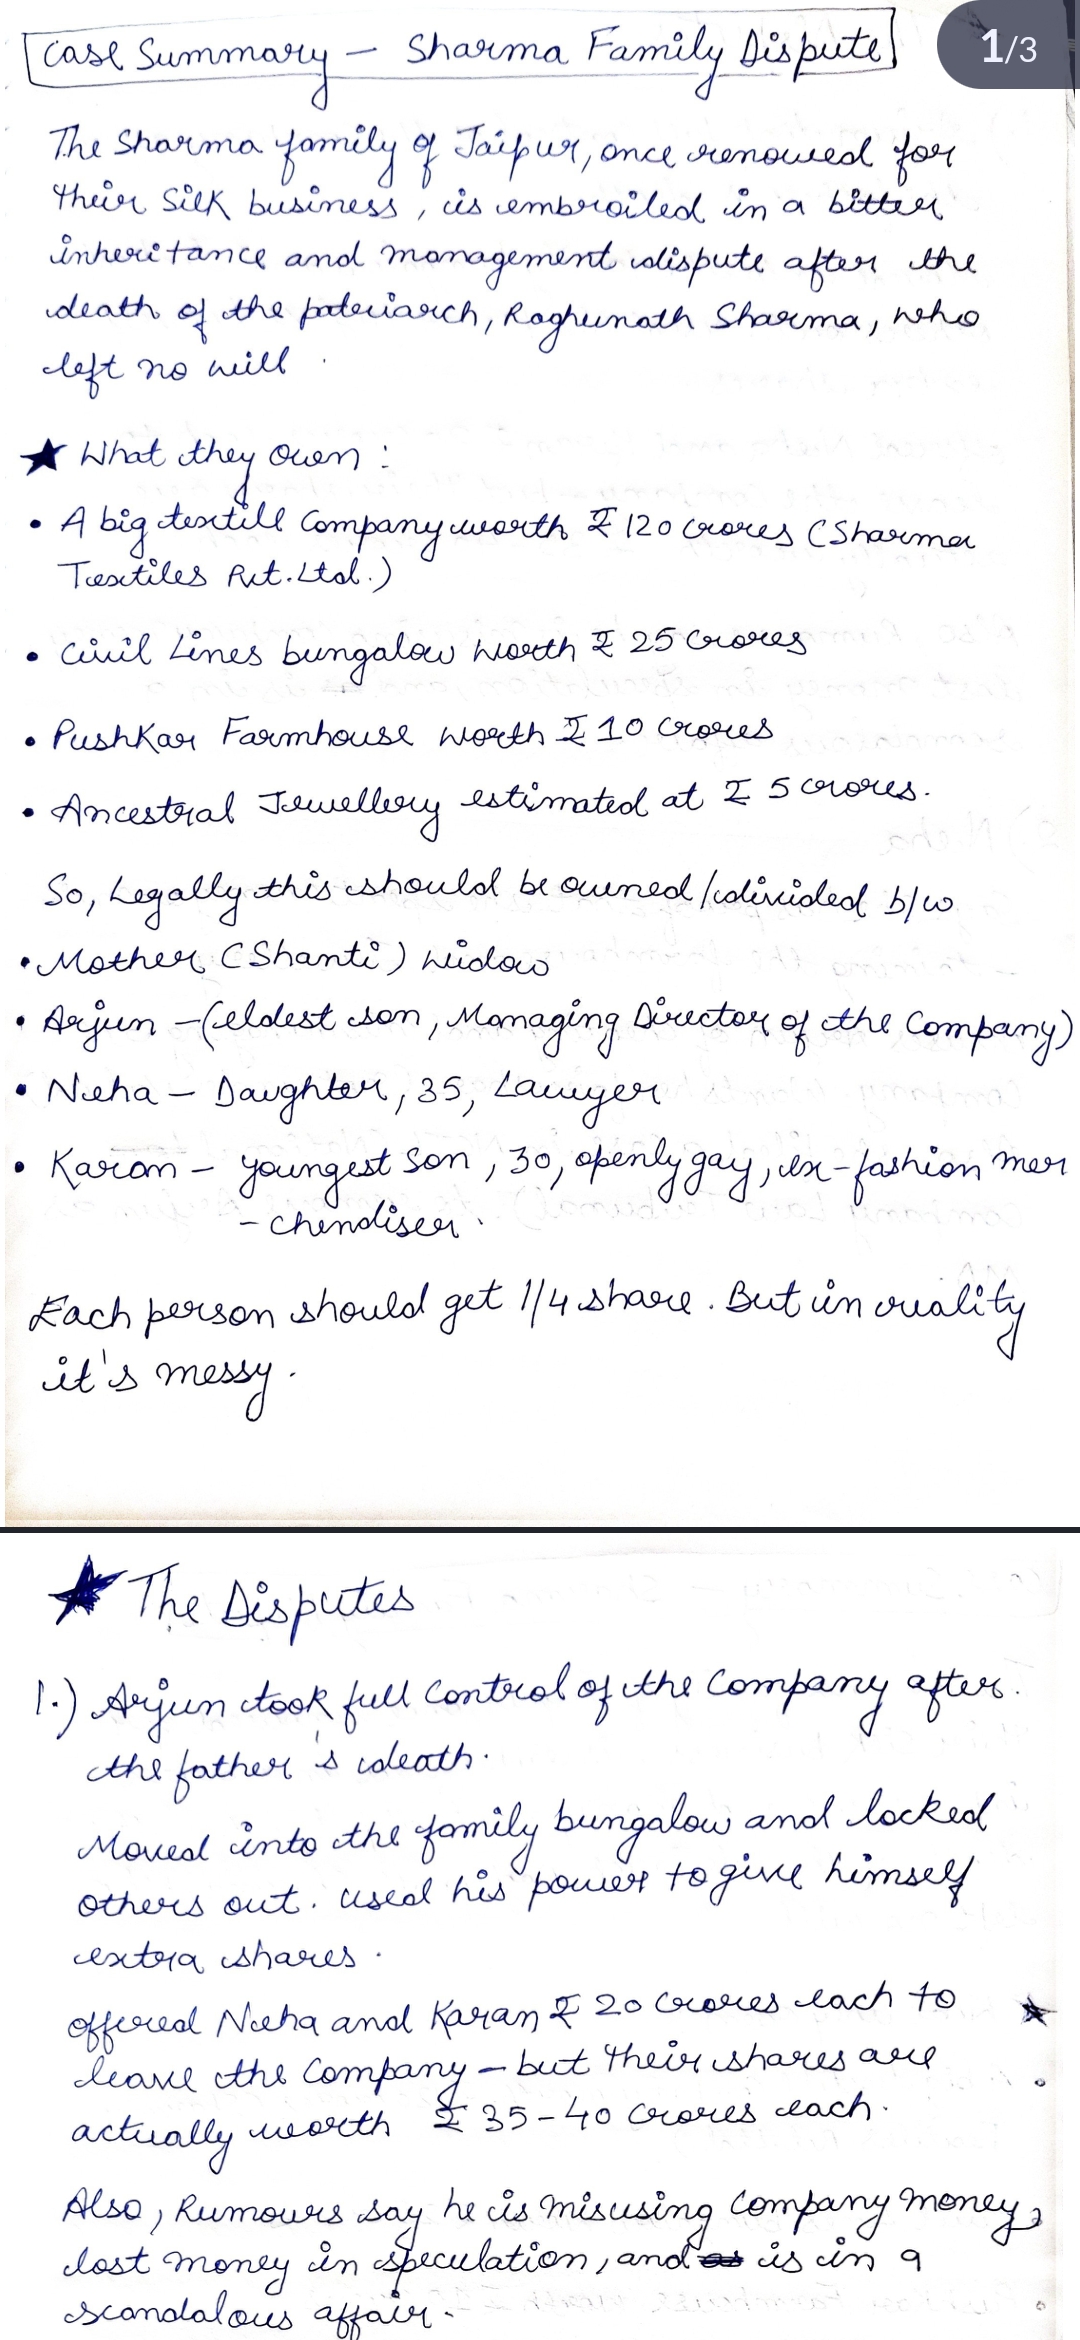 Case Summary - Sharma Family Dispute
1/3
The Sharma family of Jaipur, once renowed for
their Silk business, is embroiled in a bitter
inheritance and management dispute after the
death of the patriarch, Raghunath Sharma, who
left no will.
★ What they own :
• A big textill Company worth ₹ 120 crores (Sharma
Textiles Pvt. Ltd.)
• Civil Lines bungalow worth ₹ 25 Crores
• Pushkar Farmhouse worth ₹ 10 Crores
• Ancestral Jewellery estimated at ₹ 5 crores.
So, Legally this should be owned/divided b/w
• Mother (Shanti) widow
• Arjun - (eldest son, Managing Director of the Company)
• Neha - Daughter, 35, Lawyer
• Karan - youngest Son, 30, openly gay, ex-fashion mer
- chendiser.
Each person should get 1/4 share. But in reality
it's messy.
★ The Disputes
1.) Arjun took full Control of the Company after.
the father's death.
Moved into the family bungalow and locked
others out. used his power to give himself
extra shares.
offered Neha and Karan ₹ 20 Crores each to
leave the Company - but their shares are
actually worth ₹ 35-40 crores each.
Also, Rumours say he is misusing Company money,
lost money in speculation, and is in a
scandalous affair.